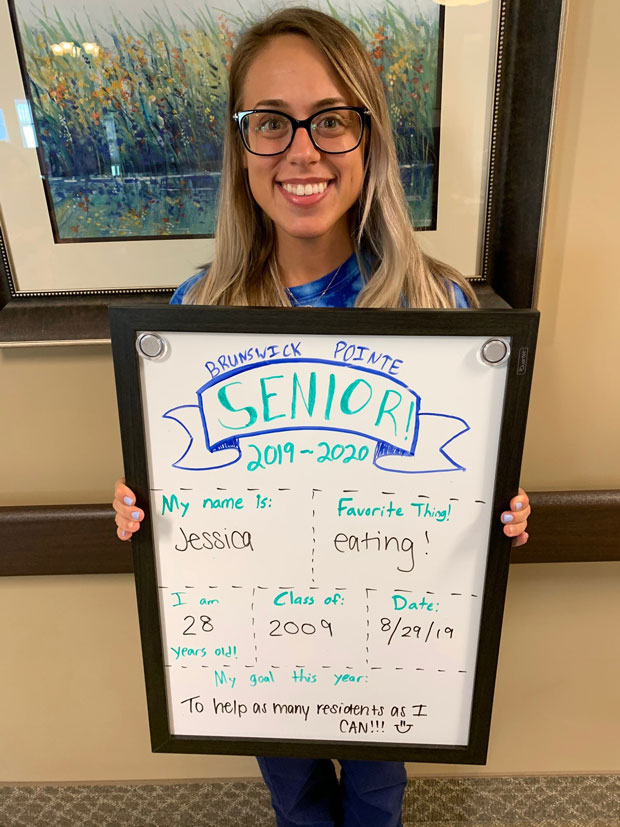 BRUNSWICK POINTE
SENIOR!
2019-2020
My name is:
Jessica
Favorite Thing!
eating!
I am
28
years old!
Class of:
2009
Date:
8/29/19
My goal this year:
To help as many residents as I
CAN!!!